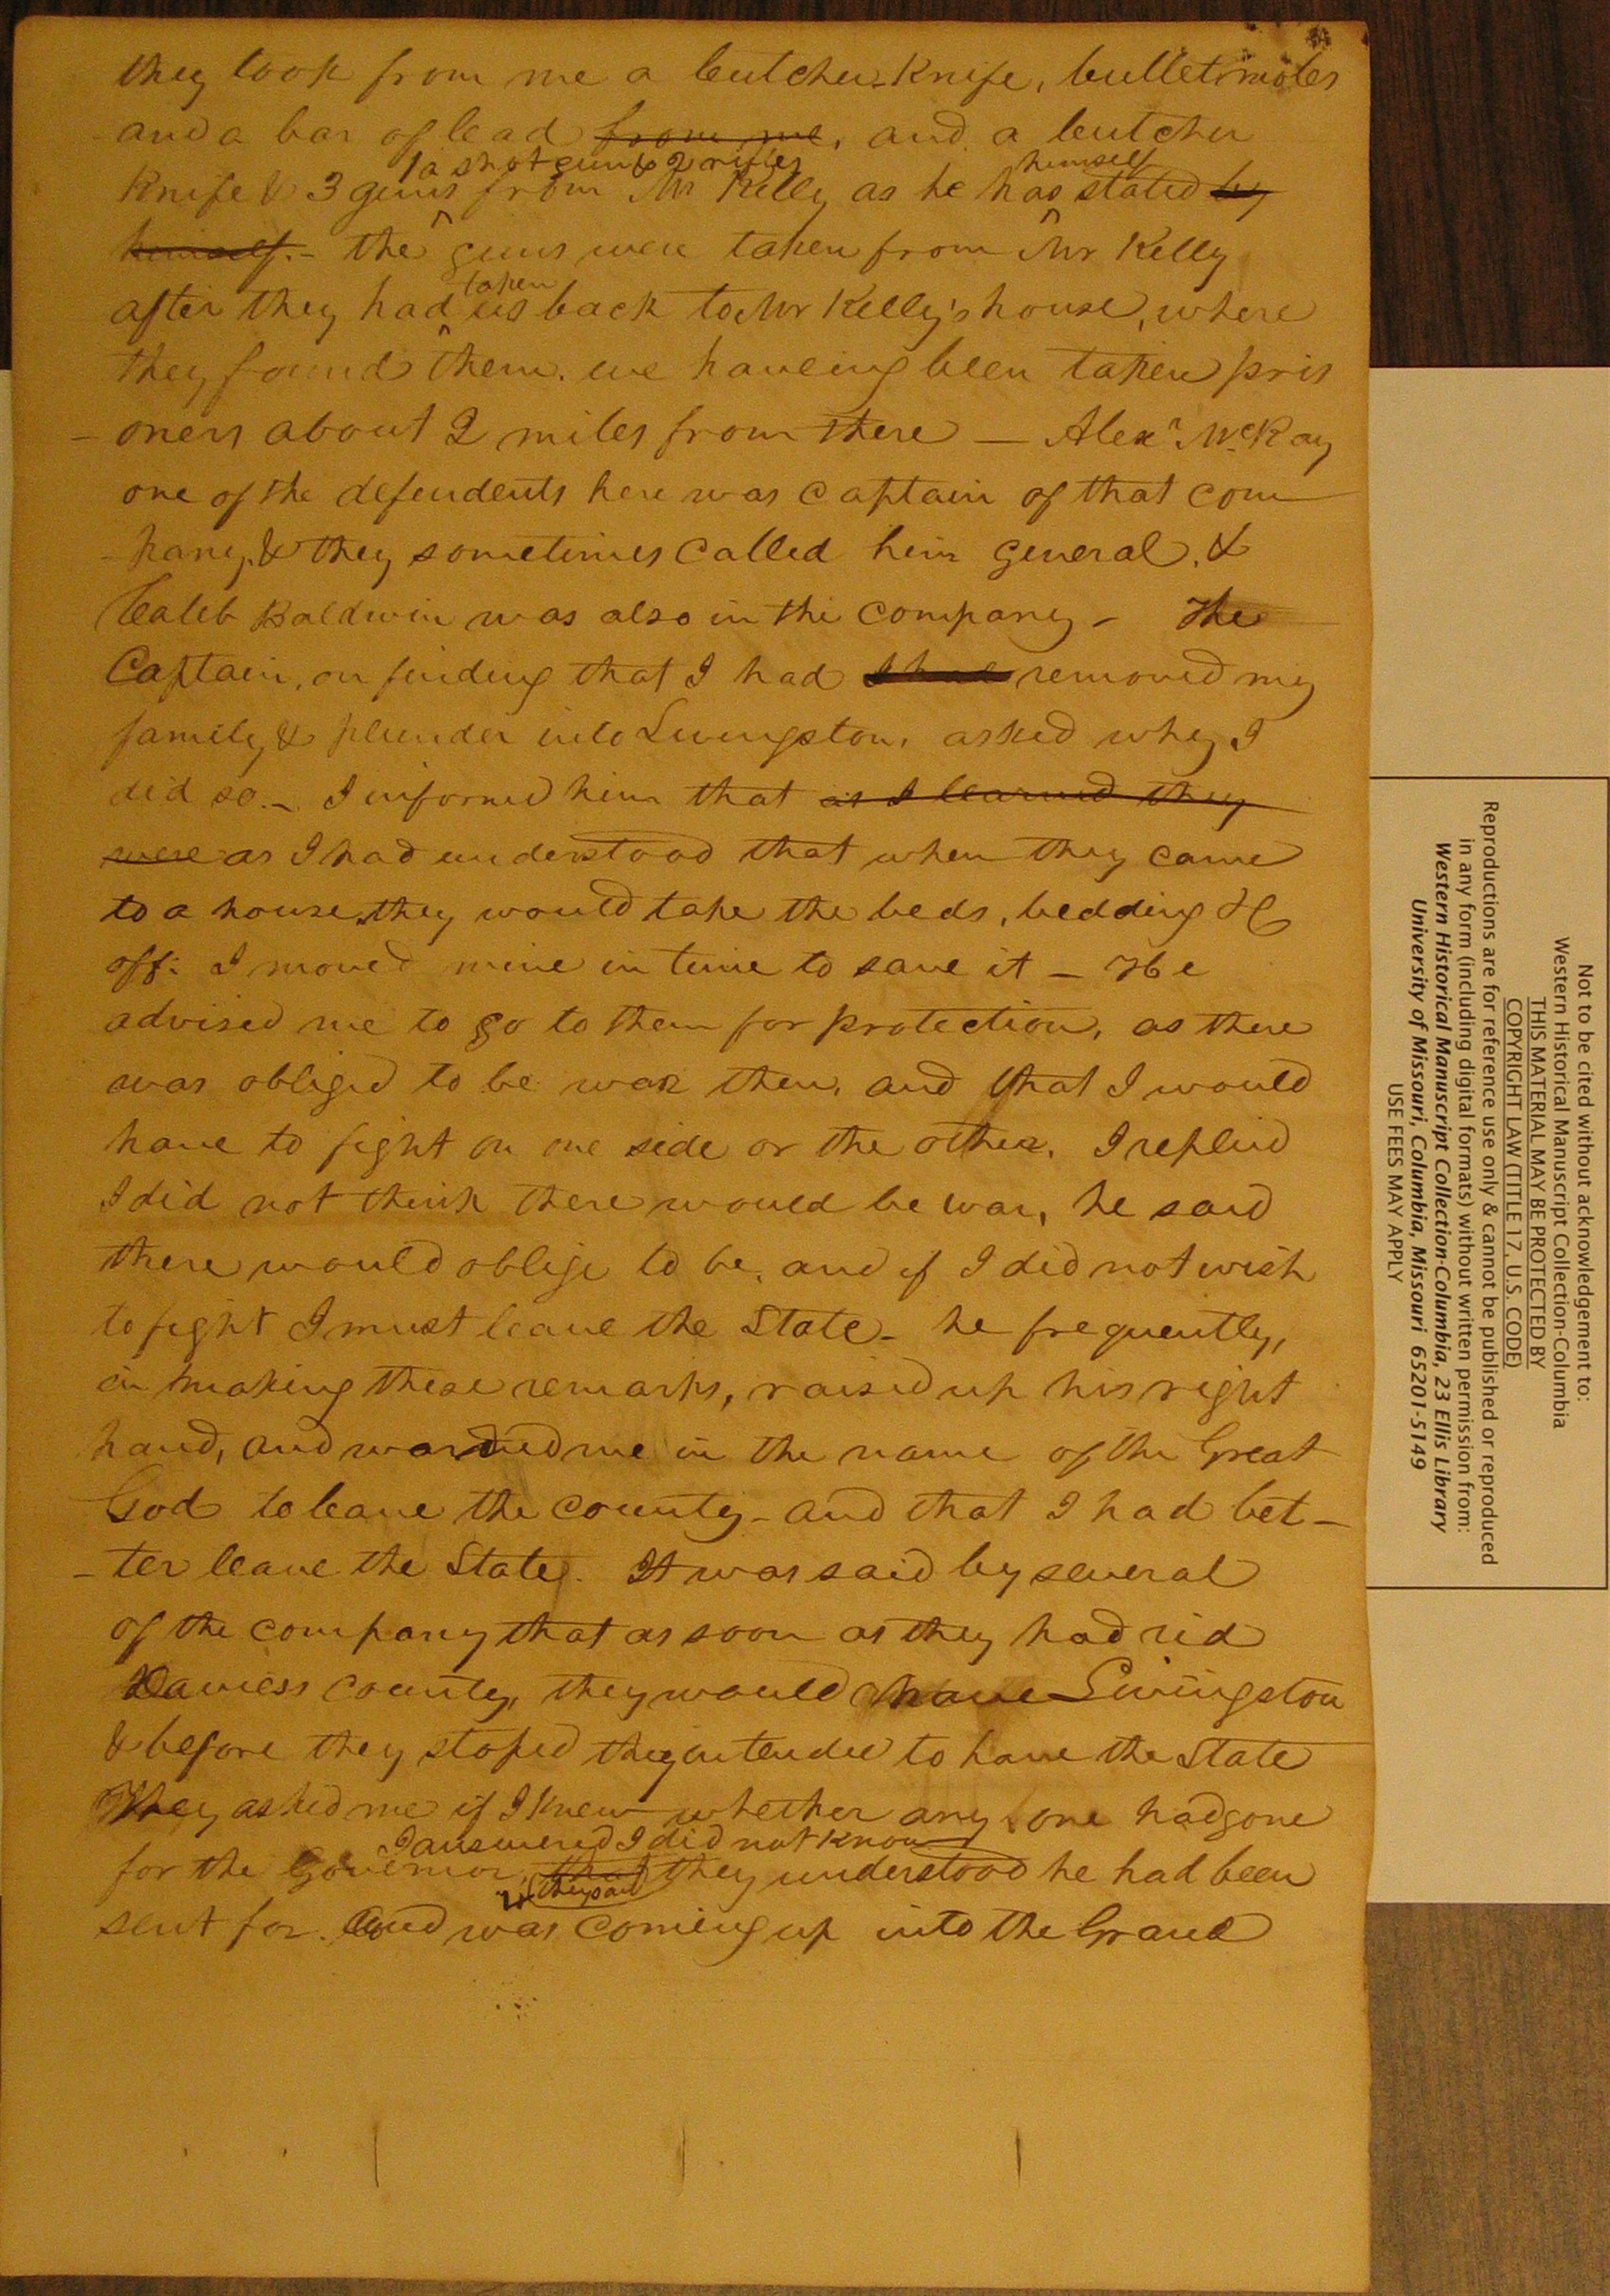 they took from me a butcher Knife, bullet moles
and a bar of lead from me, and a butcher
1 a shot gun & 2 rifles himself
Knife & 3 guns from Mr Kelly as he has stated by
himself. - the guns were taken from Mr Kelly
taken
after they had us back to Mr Kelly's house, where
they found them. we haveing been taken pris
- oners about 2 miles from there — Alexr McKay
one of the defendents here was Captain of that com
- pany, & they sometimes called him General. &
Caleb Baldwin was also in the Company - The
Captain, on finding that I had I had removed my
family & plunder into Livingston, asked why I
did so. - I informed him that as I learned they
were as I had understood that when they came
to a house, they would take the beds, bedding &c
off: I moved mine in time to save it - He
advised me to go to them for protection, as there
was obliged to be war then, and that I would
have to fight on one side or the other. I replied
I did not think there would be war, he said
there would oblige to be, and if I did not wish
to fight I must leave the State - he frequently,
in making these remarks, raised up his right
hand, and warned me in the name of the Great
God to leave the County - and that I had bet-
- ter leave the State. It was said by several
of the company that as soon as they had rid
Daviess County, they would have Livingston
& before they stoped they intended to have the State
They asked me if I knew whether any one had gone
I answered I did not know
for the Governor, that they understood he had been
they said
sent for. and was coming up into the Grand
Not to be cited without acknowledgement to:
Western Historical Manuscript Collection-Columbia
THIS MATERIAL MAY BE PROTECTED BY
COPYRIGHT LAW (TITLE 17, U.S. CODE)
Reproductions are for reference use only & cannot be published or reproduced
in any form (including digital formats) without written permission from:
Western Historical Manuscript Collection-Columbia, 23 Ellis Library
University of Missouri, Columbia, Missouri 65201-5149
USE FEES MAY APPLY